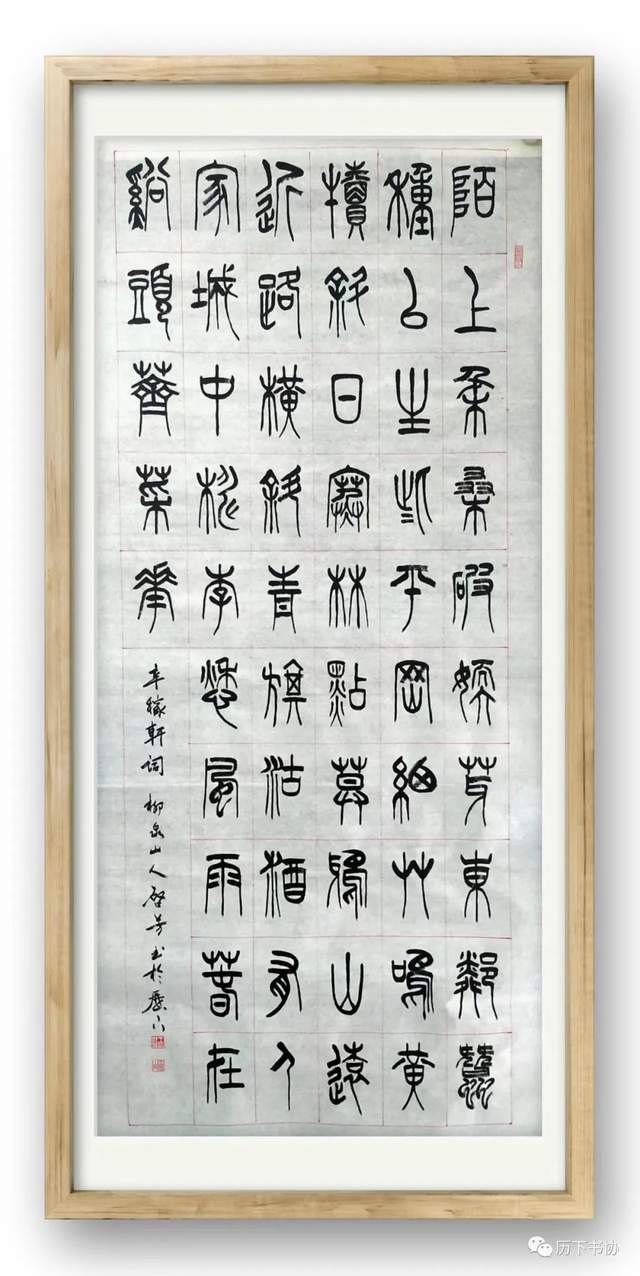 陌上柔桑破嫩芽東鄰蠶
種已生些平岡細艸鳴黃
犢斜日寒林點莫鴉山遠
近路橫斜青旗沽酒有人
家城中桃李愁風雨春在
谿頭薺菜華
辛稼軒詞 柳泉山人啓芳書於歷下
历下书协